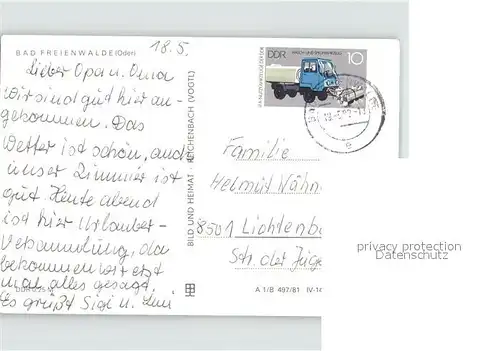 BAD FREIENWALDE (Oder)
18.5.
Lieber Opa u. Oma
wir sind gut hier an-
gekommen. Das
Wetter ist schön, auch
unser Zimmer ist
gut. Heute abend
ist hier Urlauber-
Versammlung, da
bekommen wir erst
mal alles gesagt.
Es grüßt Sigi u.
DDR 0,25 M
BILD UND HEIMAT · REICHENBACH (VOGTL)
A 1/B 497/81 IV-14
DDR
10
Familie
Helmut
8501 Lichtenb
Str. der
privacy protection
Datenschutz